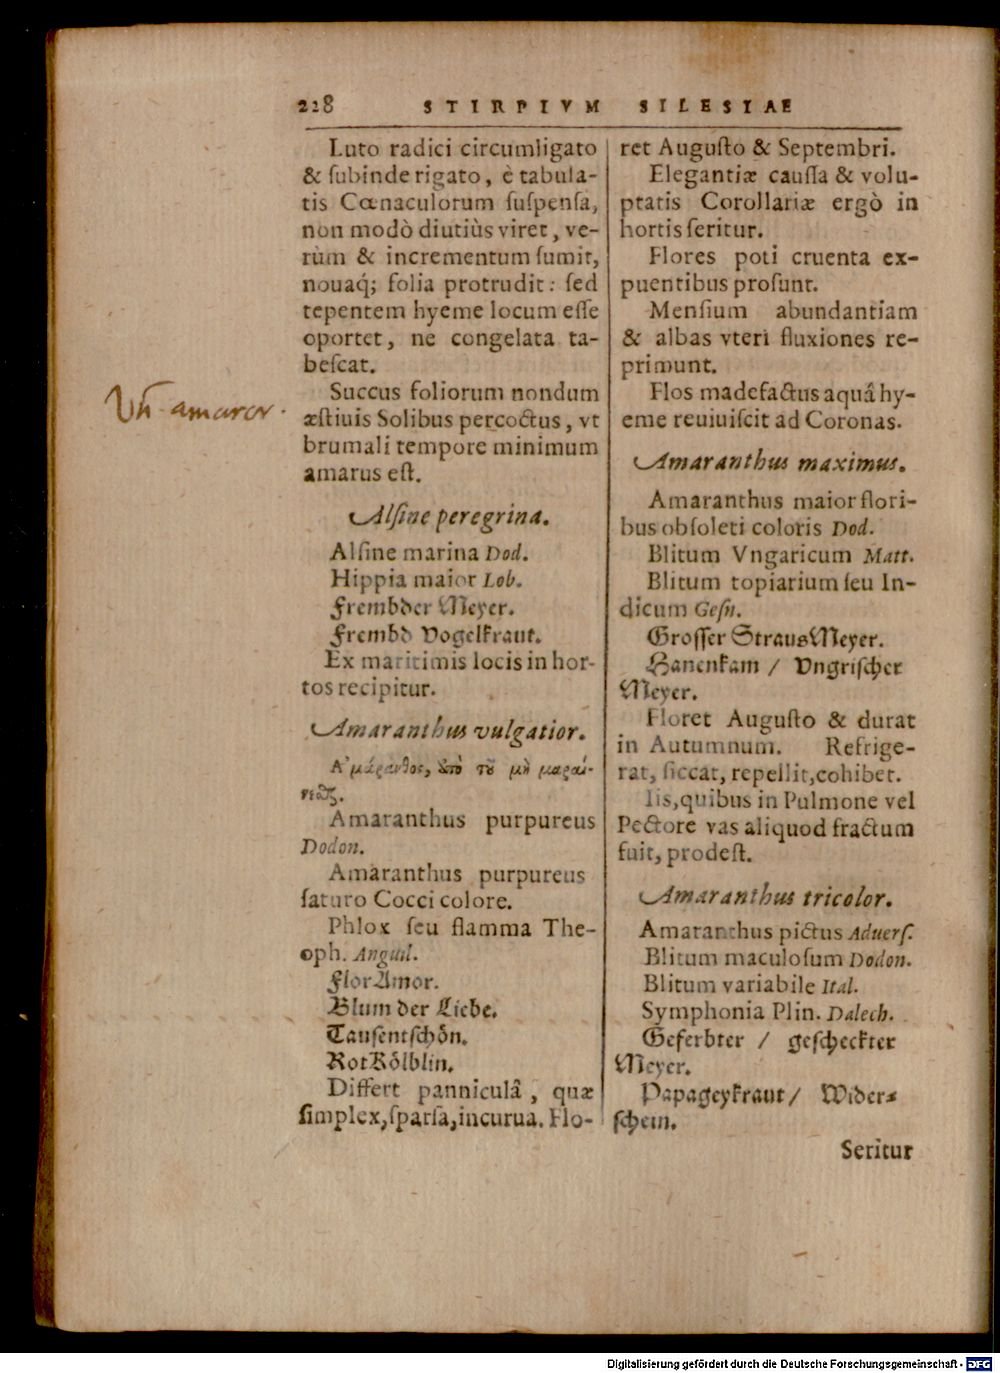 228 STIRPIVM SILESIAE
Luto radici circumligato
& ſubinde rigato, è tabula-
tis Cœnaculorum ſuſpenſa,
non modò diutiùs viret, ve-
rùm & incrementum ſumit,
nouaq́; folia protrudit: ſed
tepentem hyeme locum eſſe
oportet, ne congelata ta-
beſcat.
Succus foliorum nondum
æſtiuis Solibus percoctus, vt
brumali tempore minimum
amarus eſt.
Alſine peregrina.
Alſine marina Dod.
Hippia maior Lob.
Frembder Meyer.
Frembd Vogelkraut.
Ex maritimis locis in hor-
tos recipitur.
Amaranthus vulgatior.
Ἀμάρανθος, ἀπὸ τοῦ μὴ μαραί-
νεσθαι.
Amaranthus purpureus
Dodon.
Amaranthus purpureus
ſaturo Cocci colore.
Phlox ſeu flamma The-
oph. Anguil.
FlorAmor.
Blum der Liebe.
Tauſentſchön.
RotKölblin.
Differt panniculâ, quæ
ſimplex, ſparſa, incurua. Flo-
ret Auguſto & Septembri.
Elegantiæ cauſſa & volu-
ptatis Corollariæ ergò in
hortis ſeritur.
Flores poti cruenta ex-
puentibus proſunt.
Menſium abundantiam
& albas vteri fluxiones re-
primunt.
Flos madefactus aquâ hy-
eme reuiuiſcit ad Coronas.
Amaranthus maximus.
Amaranthus maior flori-
bus obſoleti coloris Dod.
Blitum Vngaricum Matt.
Blitum topiarium ſeu In-
dicum Geſn.
Groſſer StrausMeyer.
Hanenkam / Vngriſcher
Meyer.
Floret Auguſto & durat
in Autumnum. Refrige-
rat, ſiccat, repellit, cohibet.
Iis, quibus in Pulmone vel
Pectore vas aliquod fractum
fuit, prodeſt.
Amaranthus tricolor.
Amaranthus pictus Aduerſ.
Blitum maculoſum Dodon.
Blitum variabile Ital.
Symphonia Plin. Dalech.
Geferbter / geſcheckter
Meyer.
Papageykraut / Wider-
ſchein.
Seritur
amaror.
Digitalisierung gefördert durch die Deutsche Forschungsgemeinschaft - DFG